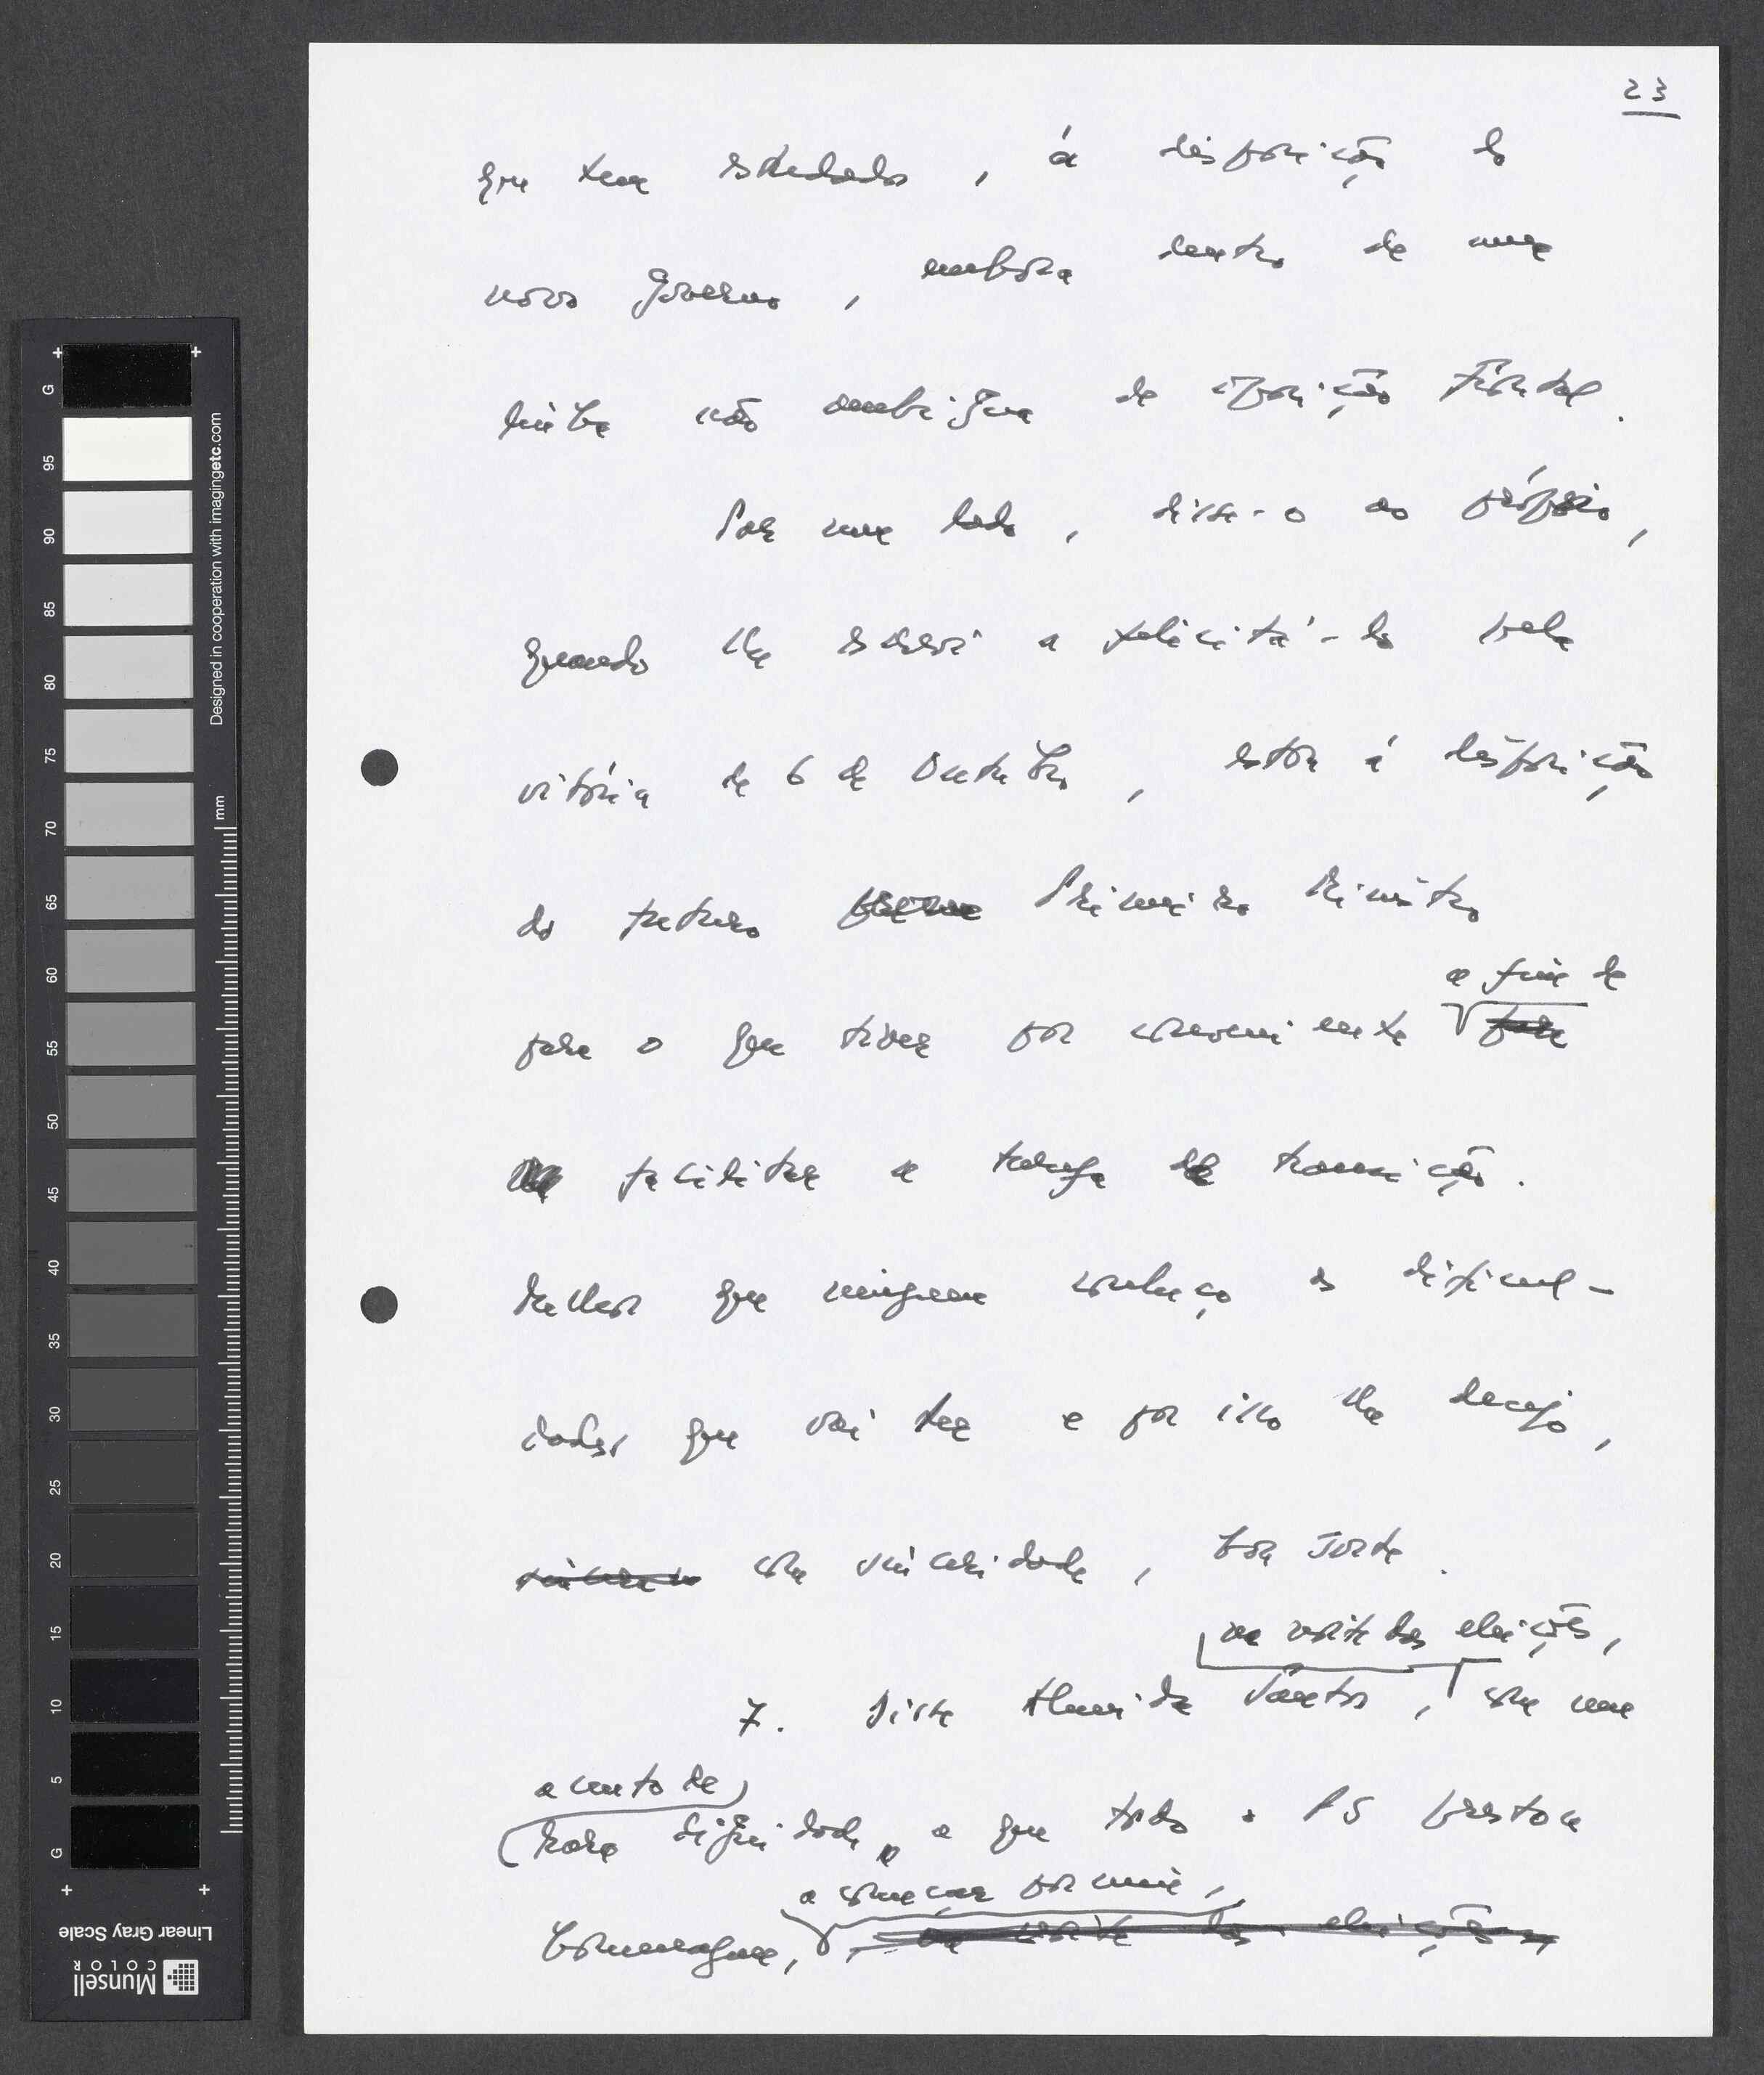 23
que tem estudado, à disposição do
novo Governo, embora dentro de uma
linha não ambígua de oposição frontal.
Por um lado, disse-o ao próprio,
quando lhe escrevi a felicitá-lo pela
vitória de 6 de Outubro, estou à disposição
do futuro Primeiro Ministro
a fim de
para o que tiver por conveniente
facilitar a tarefa de transição.
Melhor que ninguém conheço as dificul-
dades que vai ter e por isso lhe desejo,
com sinceridade, boa sorte.
na noite das eleições,
7. Disse Almeida Santos, com um
acento de
rara dignidade, a que todo o PS prestou
a começar por mim,
homenagem,
na noite das eleições
Designed in cooperation with imagingetc.com
mm
G
95
90
85
80
75
70
65
60
55
50
45
40
35
30
25
20
15
10
5
G
Linear Gray Scale
Munsell
COLOR